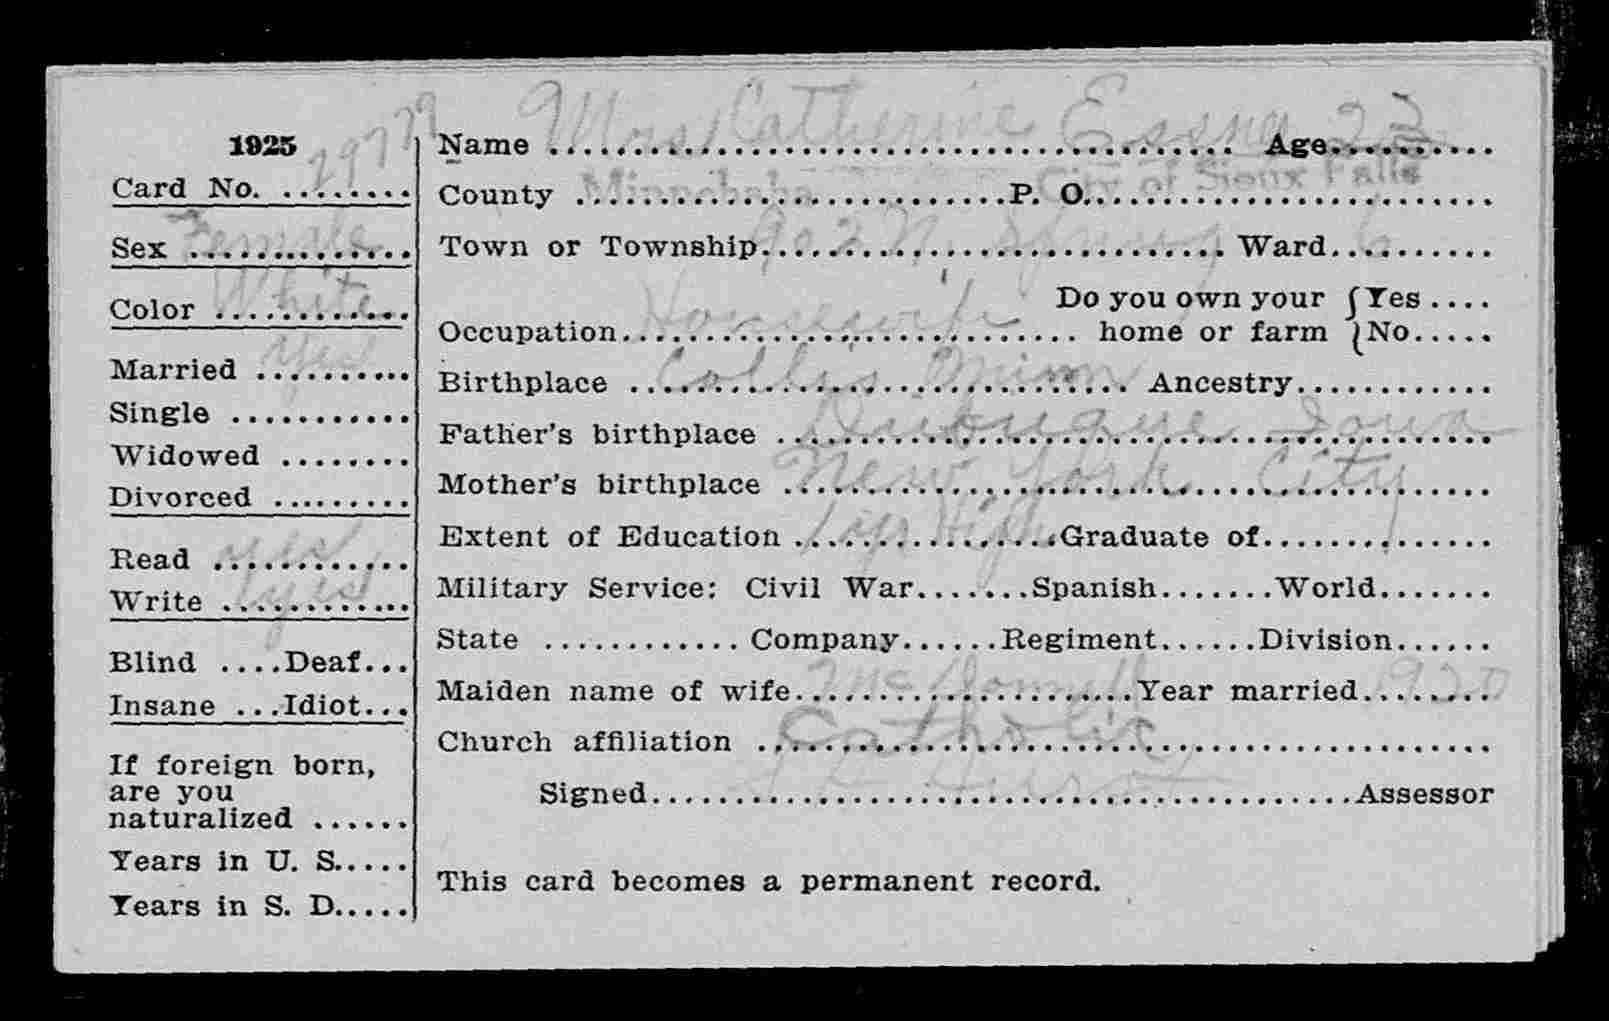 1925
Card No. ........ 29777
Sex .............. Female
Color ............ White
Married .......... yes
Single ...........
Widowed ........
Divorced .........
Read ............ yes
Write ............ yes
Blind ....Deaf...
Insane ...Idiot...
If foreign born,
are you
naturalized ......
Years in U. S.....
Years in S. D.....
Name Mrs Catherine Age 23
County Minnehaha P. O. City of Sioux Falls
Town or Township 902 N. Spring Ward 6
Do you own your {Yes ....
Occupation Housewife home or farm {No.....
Birthplace Collis Minn Ancestry............
Father's birthplace Dubuque Iowa
Mother's birthplace New York City
Extent of Education 1 yr High Graduate of..............
Military Service: Civil War.......Spanish.......World.......
State ............ Company......Regiment......Division......
Maiden name of wife McDonnell Year married 1920
Church affiliation Catholic
Signed Durst Assessor
This card becomes a permanent record.